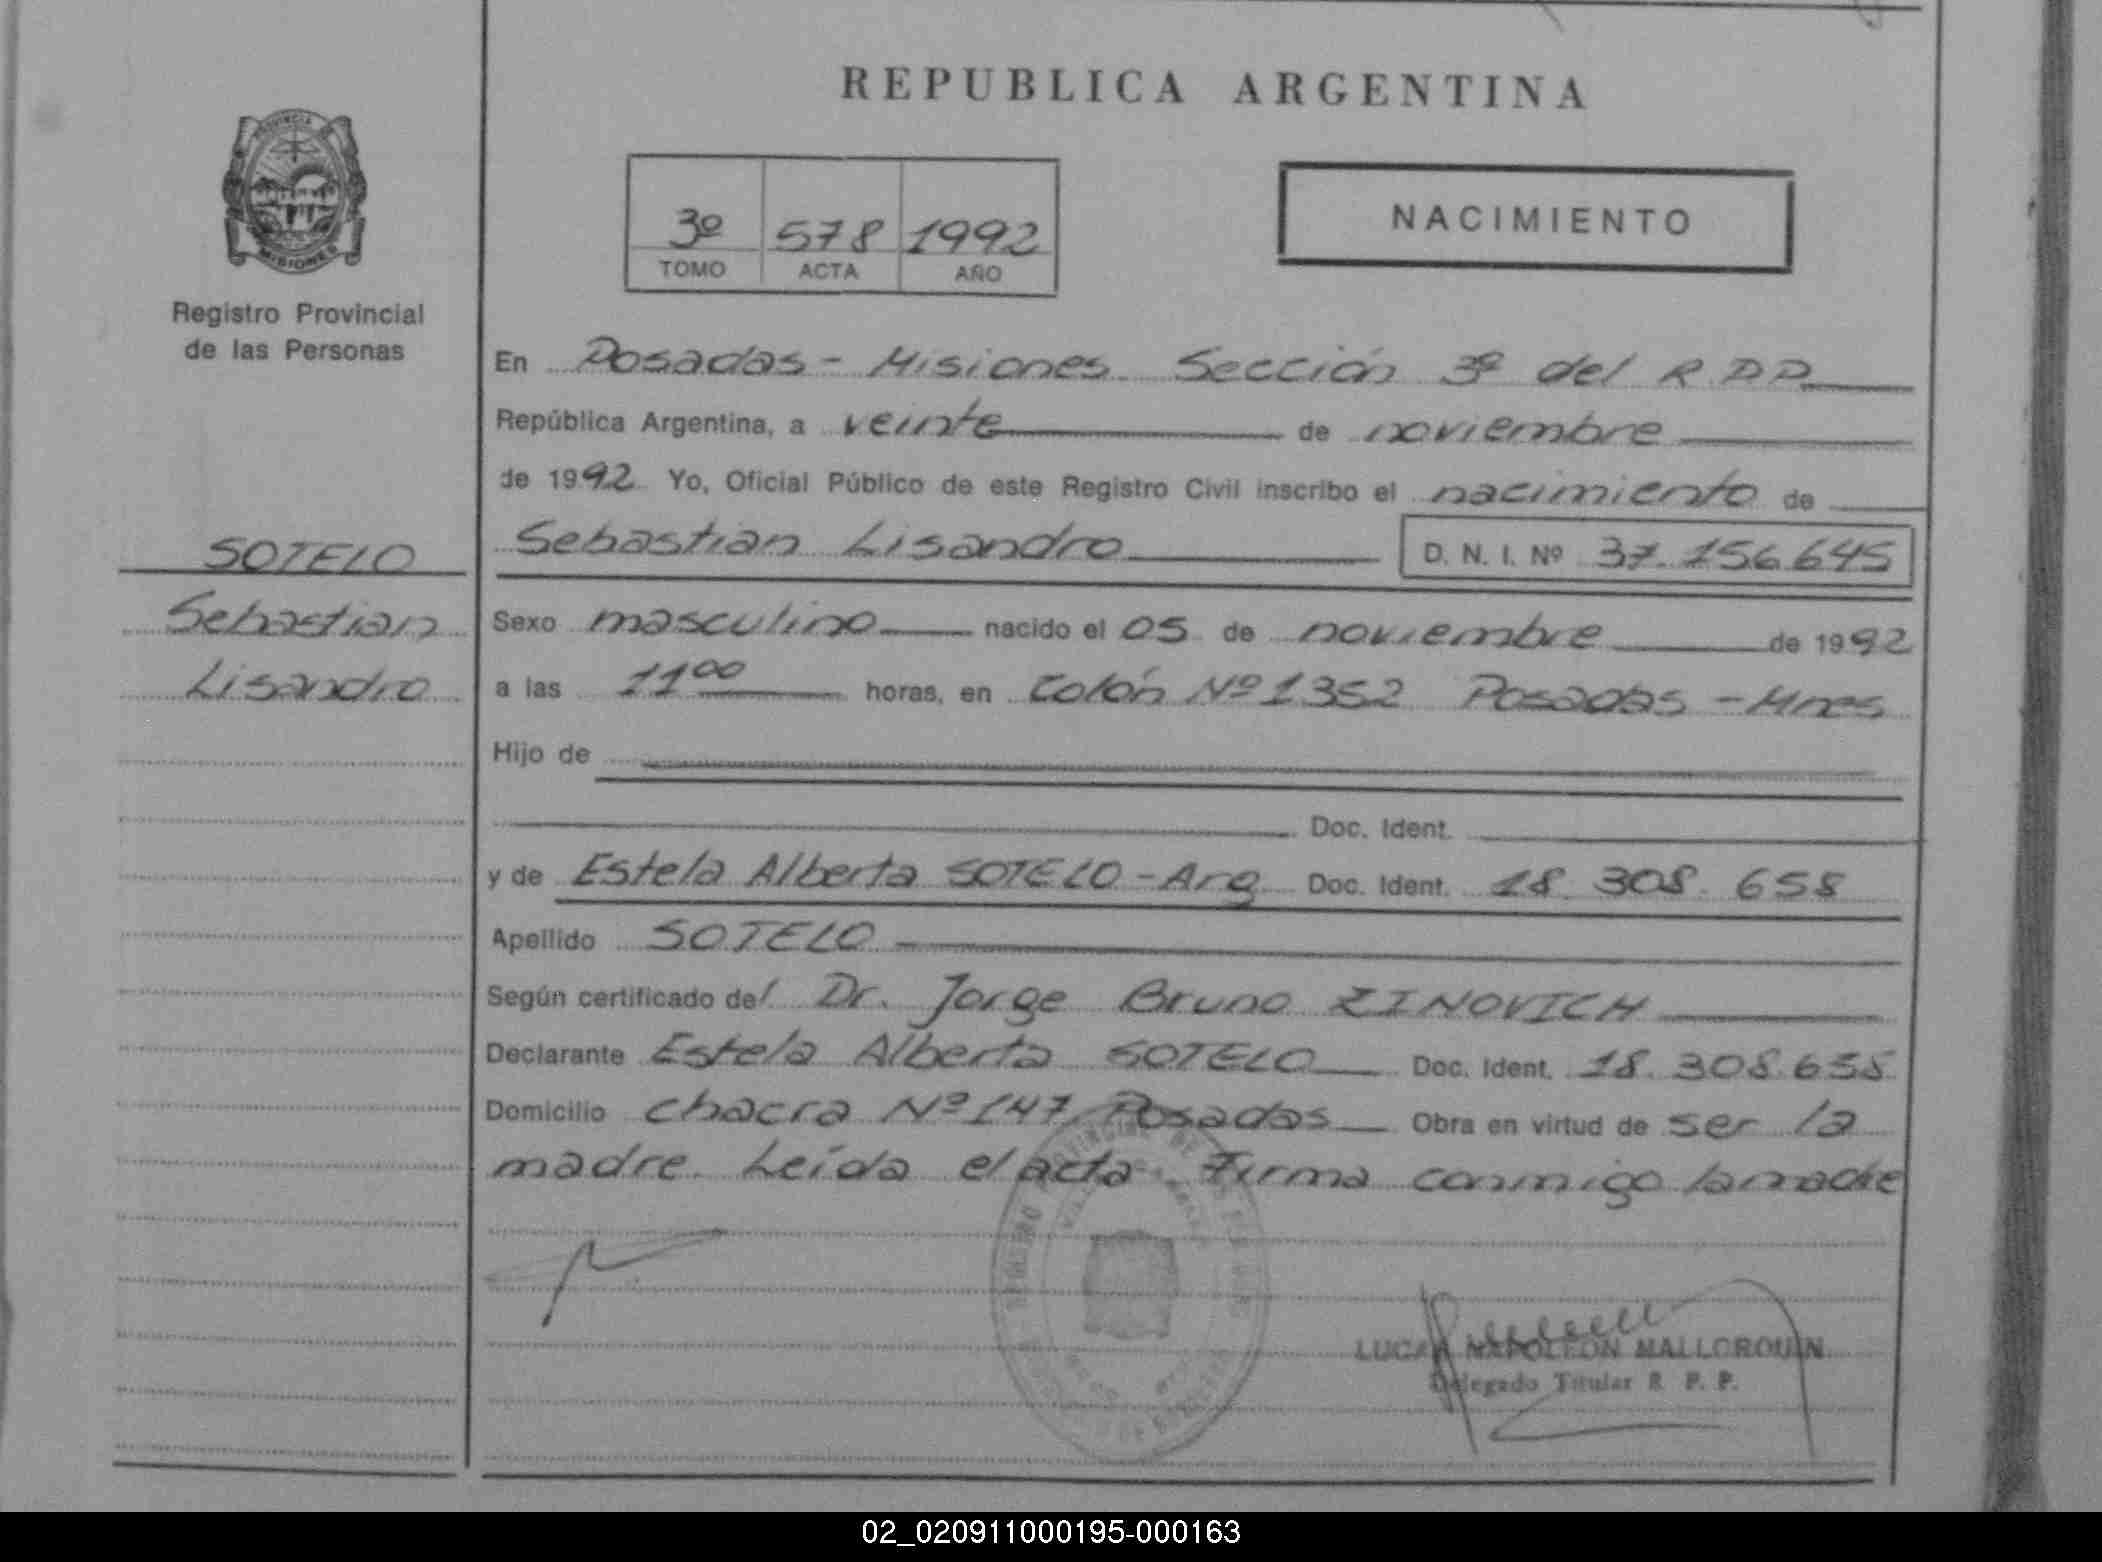 REPUBLICA ARGENTINA
PROVINCIA DE
MISIONES
Registro Provincial
de las Personas
3º 578 1992
TOMO ACTA AÑO
NACIMIENTO
En Posadas - Misiones Sección 3º del R.P.P.
República Argentina, a veinte de noviembre
de 1992 Yo, Oficial Público de este Registro Civil inscribo el nacimiento de
Sebastian Lisandro D. N. I. Nº 37.156.645
SOTELO
Sebastian
Lisandro
Sexo masculino nacido el 05 de noviembre de 1992
a las 11 00 horas, en Colón Nº 1352 Posadas - Mnes
Hijo de
Doc. Ident.
y de Estela Alberta SOTELO - Arg Doc. Ident. 18.308.658
Apellido SOTELO
Según certificado del Dr. Jorge Bruno ZINOVICH
Declarante Estela Alberta SOTELO Doc. Ident. 18.308.658
Domicilio chacra Nº 147, Posadas Obra en virtud de ser la
madre. Leída el acta Firma conmigo la madre
LUCAS NAPOLEON MALLORQUIN
Delegado Titular R. P. P.
02_020911000195-000163